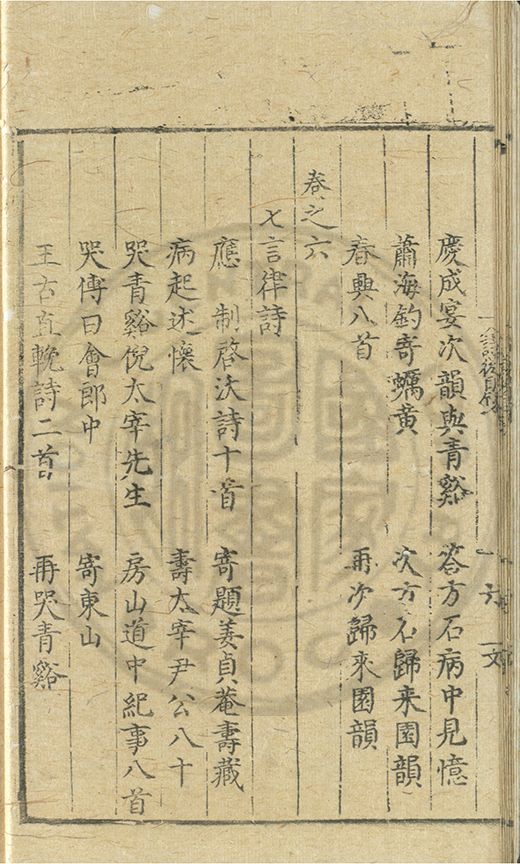 慶成宴次韻與青谿　答方石病中見憶
蕭海釣寄蠣黄　次方石歸来園韻
春興八首　再次歸來園韻
卷之六
七言律詩
應　制啓沃詩十首　寄題姜貞菴壽藏
病起述懷　壽太宰尹公八十
哭青谿倪太宰先生　房山道中紀事八首
哭傅曰會郎中　寄東山
王古直輓詩二首　再哭青谿